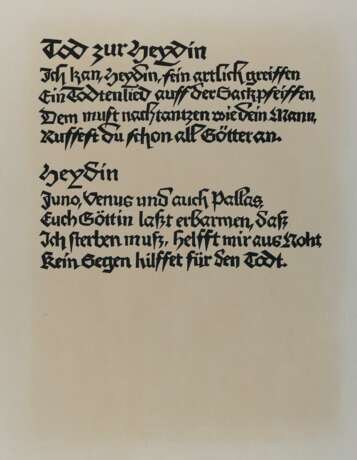 Tod zur Heydin
Ich kan, Heydin, fein artlich greiffen
Ein Todtenlied auff der Sackpfeiffen,
Dem must nach tantzen wie dein Mann,
Ruffest du schon all Götter an.
Heydin
Juno, Venus und auch Pallas,
Euch Göttin laßt erbarmen, daß
Ich sterben muß, helfft mir aus Noht
Kein Segen hilffet für den Todt.